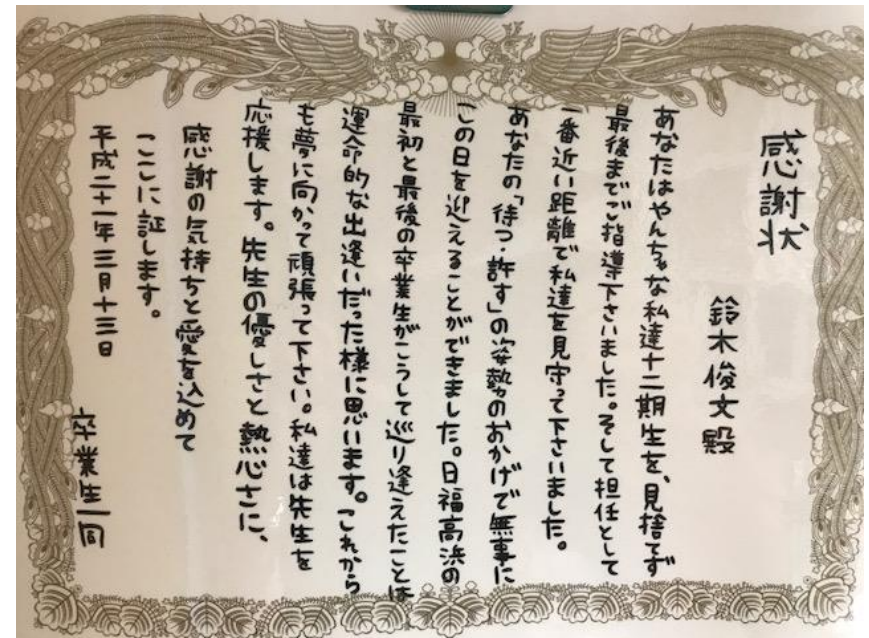 感謝状
鈴木俊文殿
あなたはやんちゃな私達十二期生を、見捨てず
最後までご指導下さいました。そして担任として
一番近い距離で私達を見守って下さいました。
あなたの「待つ・許す」の姿勢のおかげで無事に
この日を迎えることができました。日福高浜の
最初と最後の卒業生がこうして巡り逢えたことは
運命的な出逢いだった様に思います。これから
も夢に向かって頑張って下さい。私達は先生を
応援します。先生の優しさと熱心さに、
感謝の気持ちと愛を込めて
ここに証します。
平成二十一年三月十三日
卒業生一同